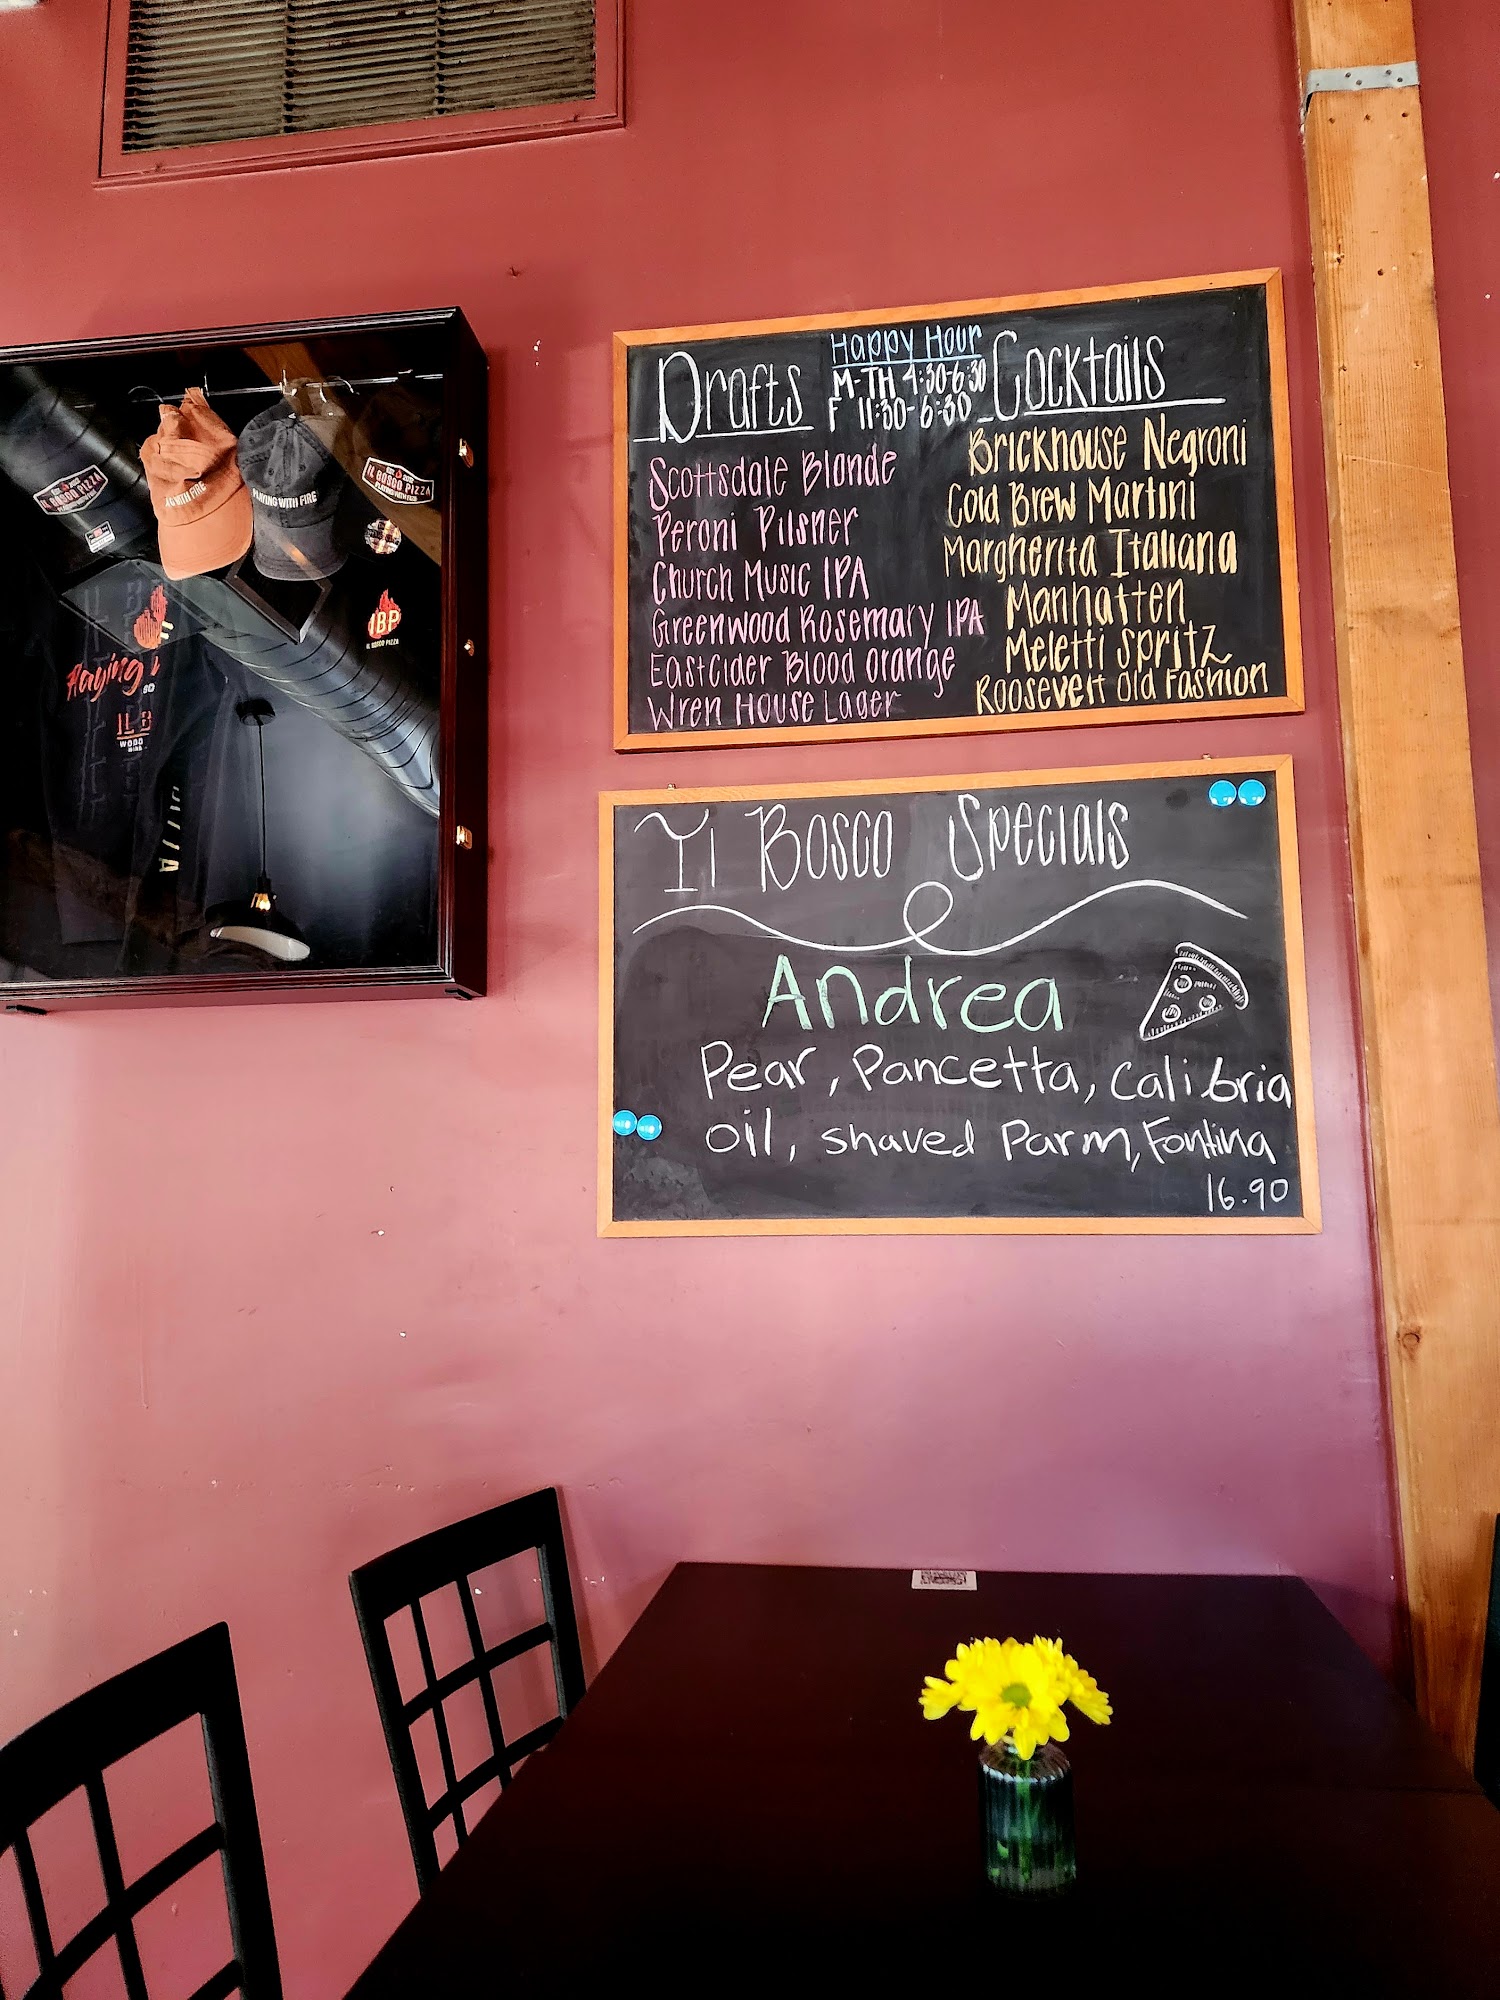 Drafts
Happy Hour
M-TH 4:30-6:30
F 11:30-6:30
Cocktails
Scottsdale Blonde
Peroni Pilsner
Church Music IPA
Greenwood Rosemary IPA
Eastcider Blood Orange
Wren House Lager
Brickhouse Negroni
Cold Brew Martini
Margherita Italiana
Manhatten
Meletti Spritz
Roosevelt Old Fashion
Il Bosco Specials
Andrea
Pear, Pancetta, Calibria
oil, shaved Parm, Fontina
16.90
IL BOSCO PIZZA
WITH FIRE
PLAYING WITH FIRE
IL BOSCO PIZZA
PLAYING WITH FIRE
IBP
IL BOSCO PIZZA
Playing
IL B
WOOD